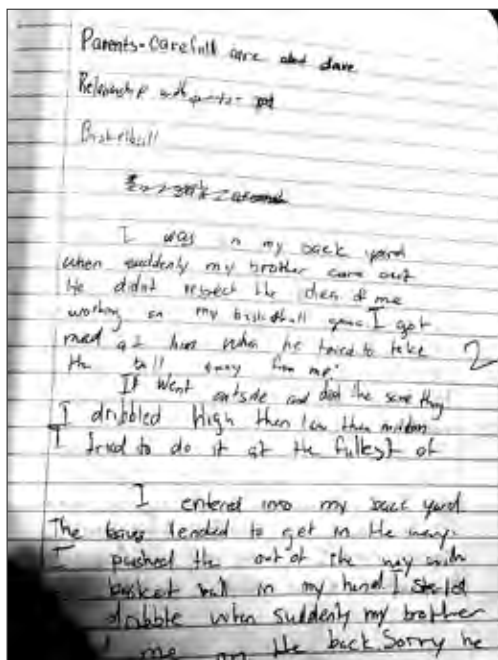 Parents-Carefull care
Relationship with
Basketball
I was in my back yard
when suddenly my brother came out
He didnt respect the of me
working on my basketball game. I got
mad at him when he tried to take
the ball away from me. 2
It went outside and did the same thing
I dribbled high then low then
I tried to do it at the fullest of
I entered into my back yard
The tended to get in the way.
I pushed the out of the way with
basket ball in my hand. I started
dribble when suddenly my brother
me on the back. Sorry he